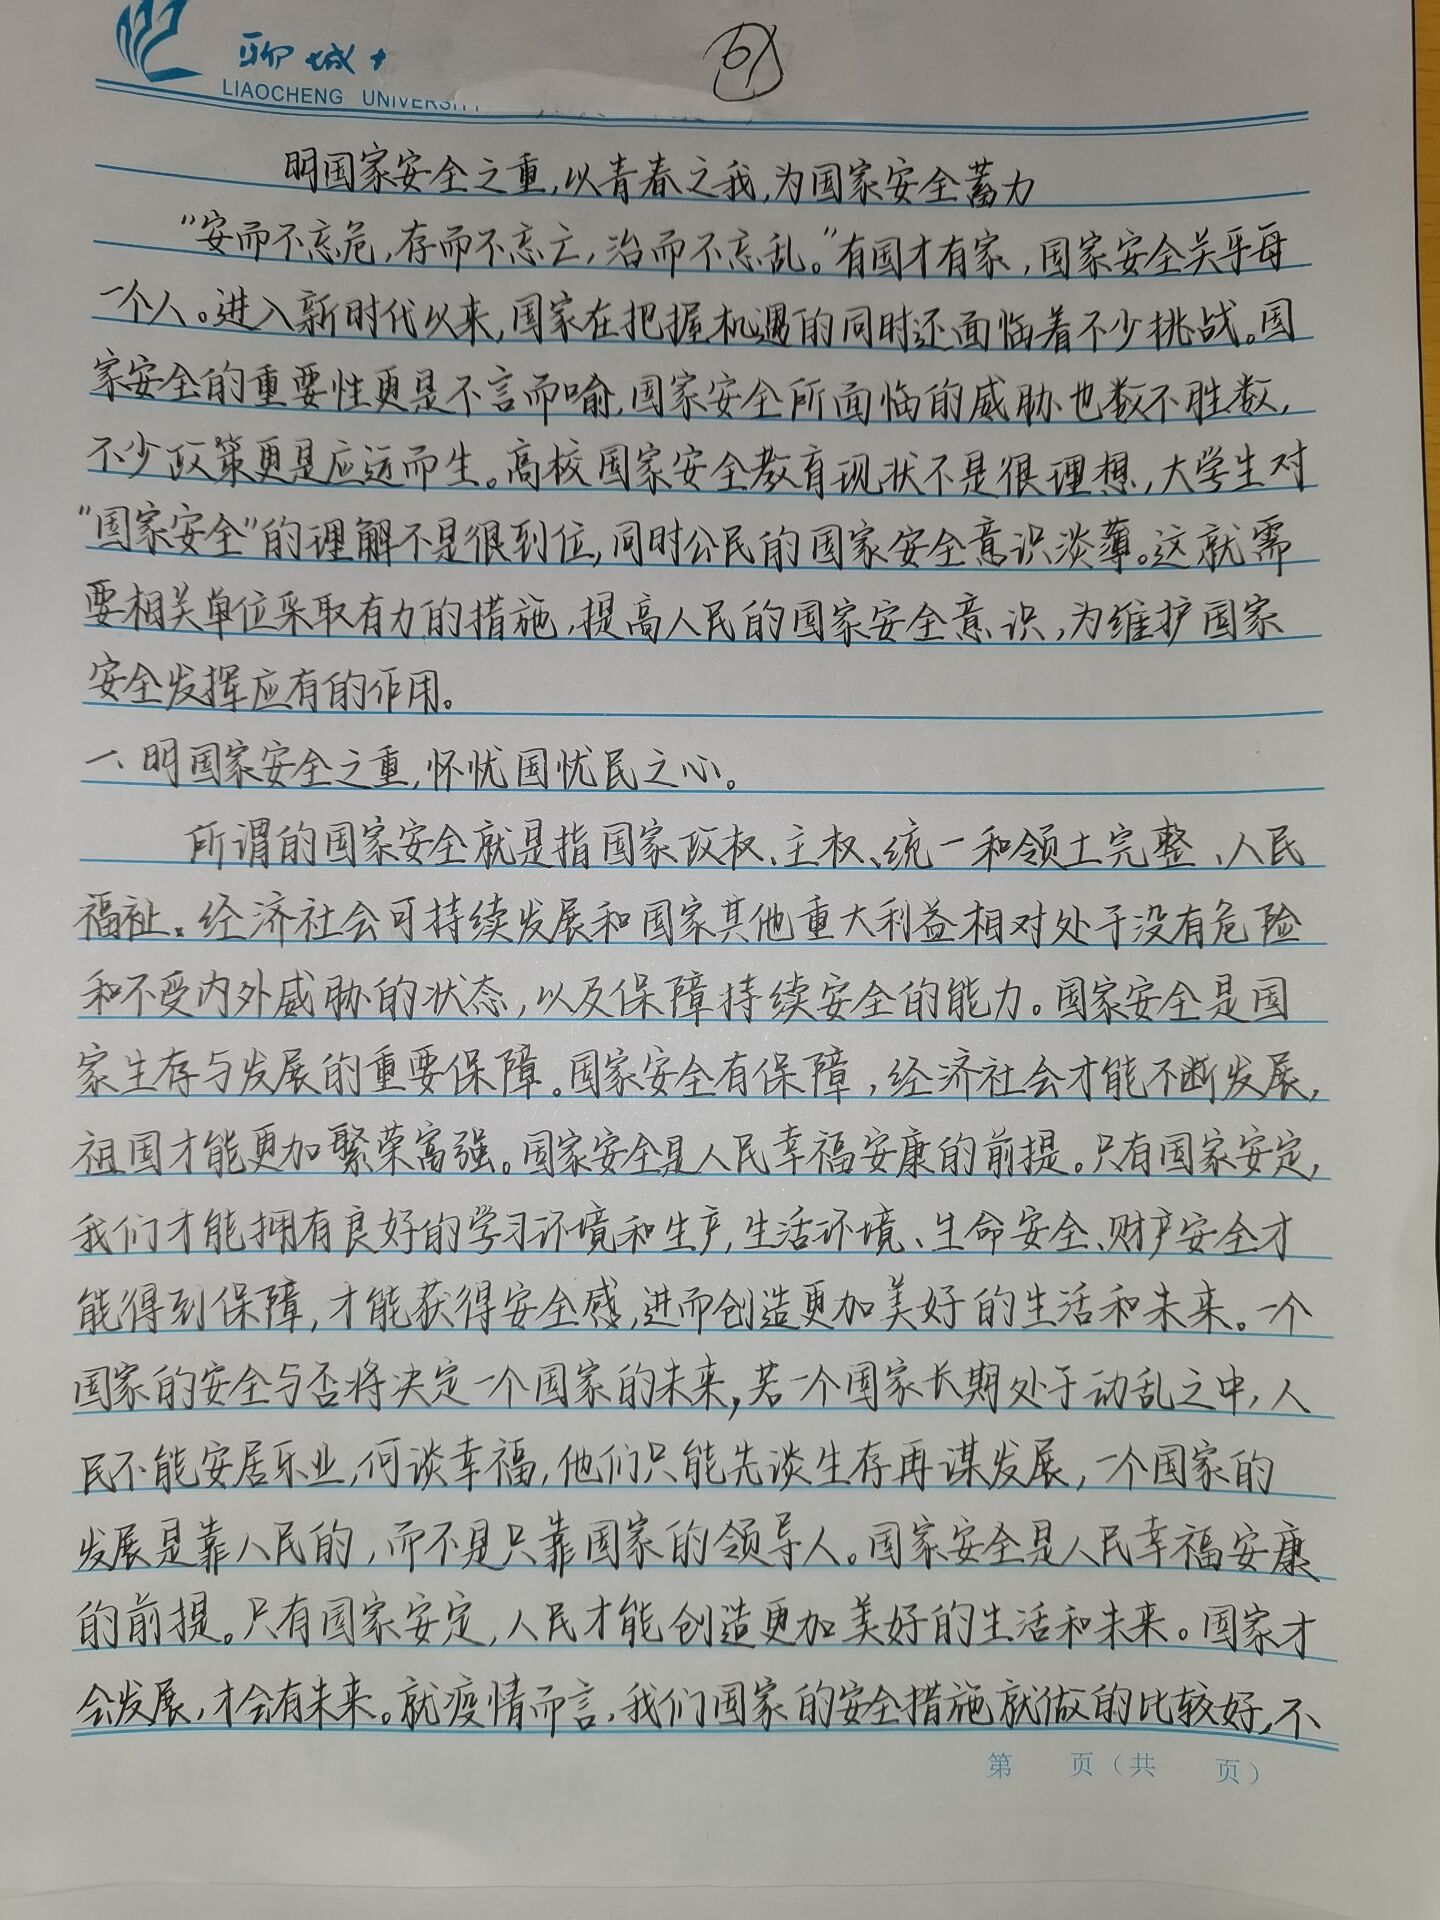 聊城大
LIAOCHENG UNIVERSITY
明国家安全之重,以青春之我,为国家安全蓄力
“安而不忘危,存而不忘亡,治而不忘乱。”有国才有家,国家安全关乎每
一个人。进入新时代以来,国家在把握机遇的同时还面临着不少挑战。国
家安全的重要性更是不言而喻,国家安全所面临的威胁也数不胜数,
不少政策更是应运而生。高校国家安全教育现状不是很理想,大学生对
“国家安全”的理解不是很到位,同时公民的国家安全意识淡薄。这就需
要相关单位采取有力的措施,提高人民的国家安全意识,为维护国家
安全发挥应有的作用。
一、明国家安全之重,怀忧国忧民之心。
所谓的国家安全就是指国家政权、主权、统一和领土完整、人民
福祉、经济社会可持续发展和国家其他重大利益相对处于没有危险
和不受内外威胁的状态,以及保障持续安全的能力。国家安全是国
家生存与发展的重要保障。国家安全有保障,经济社会才能不断发展,
祖国才能更加繁荣富强。国家安全是人民幸福安康的前提。只有国家安定,
我们才能拥有良好的学习环境和生产,生活环境、生命安全、财产安全才
能得到保障,才能获得安全感,进而创造更加美好的生活和未来。一个
国家的安全与否将决定一个国家的未来,若一个国家长期处于动乱之中,人
民不能安居乐业,何谈幸福,他们只能先谈生存再谋发展,一个国家的
发展是靠人民的,而不是只靠国家的领导人。国家安全是人民幸福安康
的前提。只有国家安定,人民才能创造更加美好的生活和未来。国家才
会发展,才会有未来。就疫情而言,我们国家的安全措施就做的比较好,不
第 页(共 页)